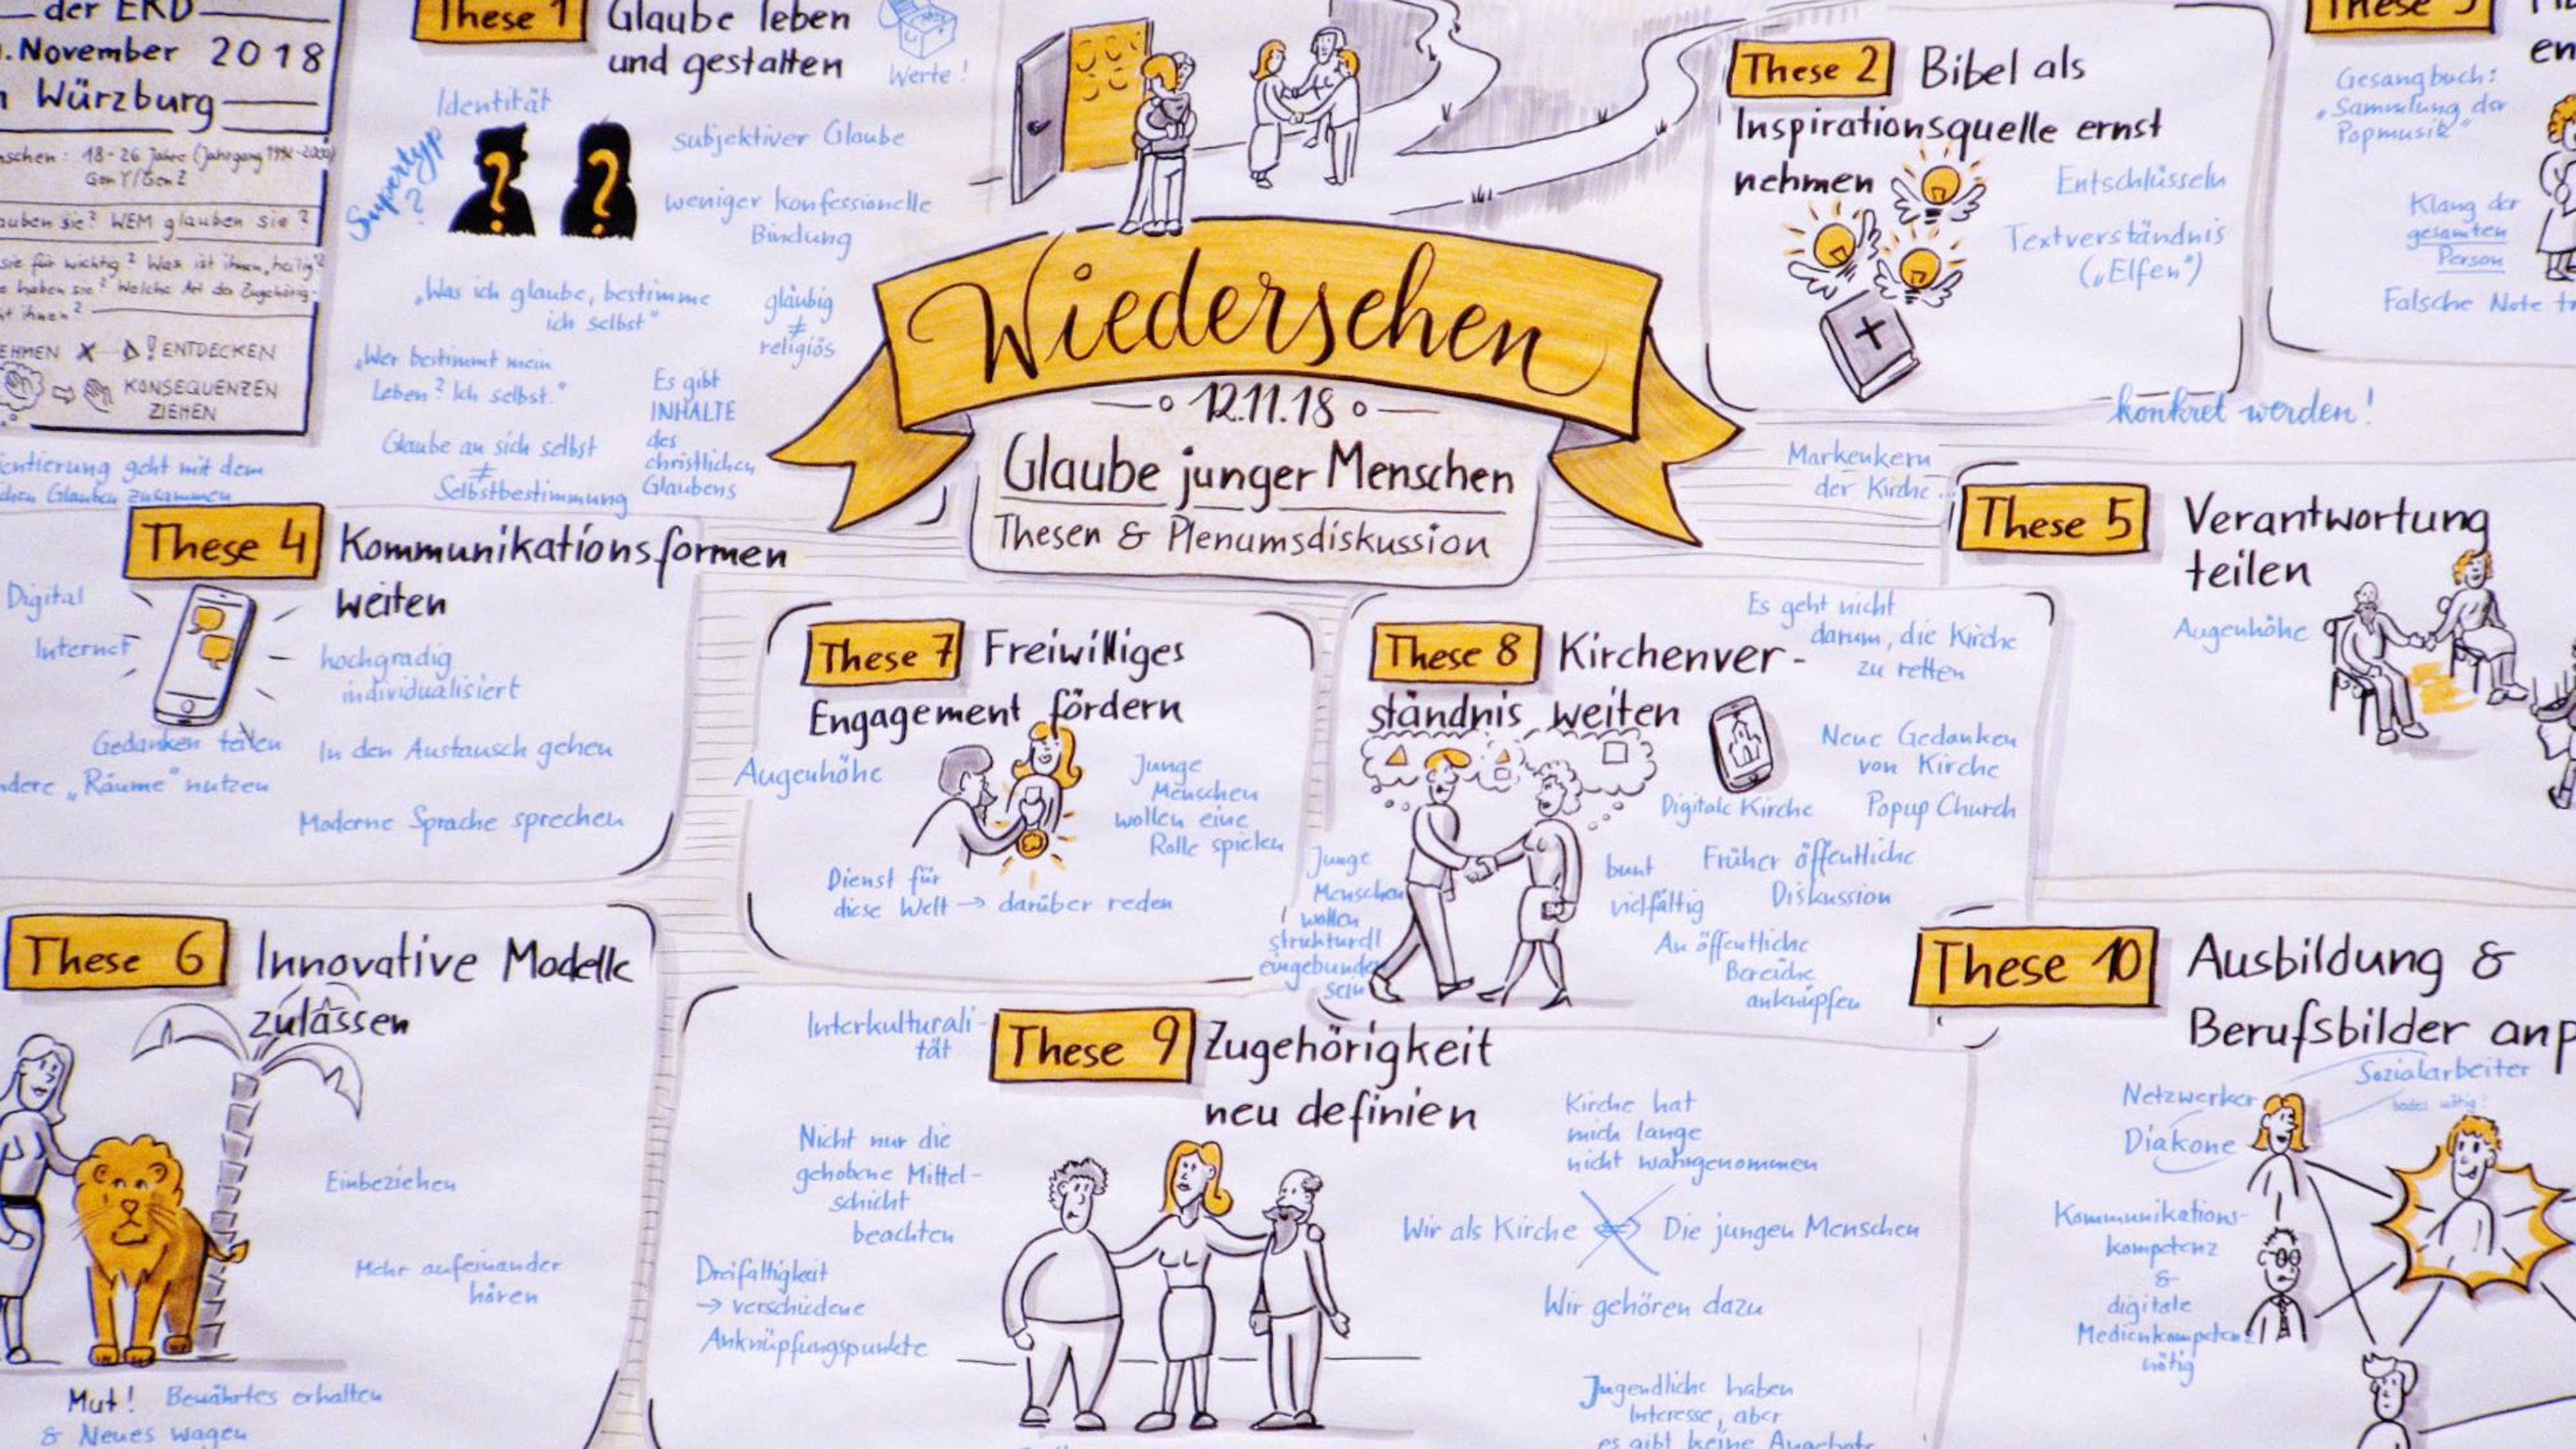 der EKD
November 2018
Würzburg
18-26 Jahre (Jahrgang
Gen Y/Gen Z
sie? WEM glauben sie?
sie für wichtig? Was ist ihnen "heilig"?
haben sie? Welche Art der Zugehörig-
ihnen?
ENTDECKEN
KONSEQUENZEN
ZIEHEN
geht mit dem
Glauben zusammen
These 1 Glaube leben
und gestalten
Werte!
Identität
Supertyp
?
subjektiver Glaube
weniger konfessionelle
Bindung
"Was ich glaube, bestimme
ich selbst"
gläubig
≠
religiös
"Wer bestimmt mein
Leben? Ich selbst."
Es gibt
INHALTE
des
christlichen
Glaubens
Glaube an sich selbst
≠
Selbstbestimmung
Wiedersehen
12.11.18
Glaube junger Menschen
Thesen & Plenumsdiskussion
These 2 Bibel als
Inspirationsquelle ernst
nehmen
Entschlüsseln
Textverständnis
("Elfen")
konkret werden!
Markenkern
der Kirche
These 3
Gesangbuch:
"Sammlung der
Popmusik"
Klang der
gesamten
Person
Falsche Note
These 4 Kommunikationsformen
weiten
Digital
Internet
hochgradig
individualisiert
Gedanken teilen
In den Austausch gehen
"Räume" nutzen
Moderne Sprache sprechen
These 5 Verantwortung
teilen
Augenhöhe
These 6 Innovative Modelle
zulassen
Einbeziehen
Mehr aufeinander
hören
Mut! Bewährtes erhalten
& Neues wagen
These 7 Freiwilliges
Engagement fördern
Augenhöhe
Junge
Menschen
wollen eine
Rolle spielen
Dienst für
diese Welt → darüber reden
These 8 Kirchenver-
ständnis weiten
Es geht nicht
darum, die Kirche
zu retten
Neue Gedanken
von Kirche
Digitale Kirche
Popup Church
Junge
Menschen
wollen
strukturell
eingebunden
sein
bunt
vielfältig
Früher öffentliche
Diskussion
An öffentliche
Bereiche
anknüpfen
These 9 Zugehörigkeit
neu definien
Interkulturali-
tät
Nicht nur die
gehobene Mittel-
schicht
beachten
Dreifaltigkeit
→ verschiedene
Anknüpfungspunkte
Kirche hat
mich lange
nicht wahrgenommen
Wir als Kirche ⇔ Die jungen Menschen
Wir gehören dazu
Jugendliche haben
Interesse, aber
es gibt keine Angebote
These 10 Ausbildung &
Berufsbilder anp
Sozialarbeiter
Netzwerker
Diakone
Kommunikations-
kompetenz
&
digitale
Medienkompetenz
nötig